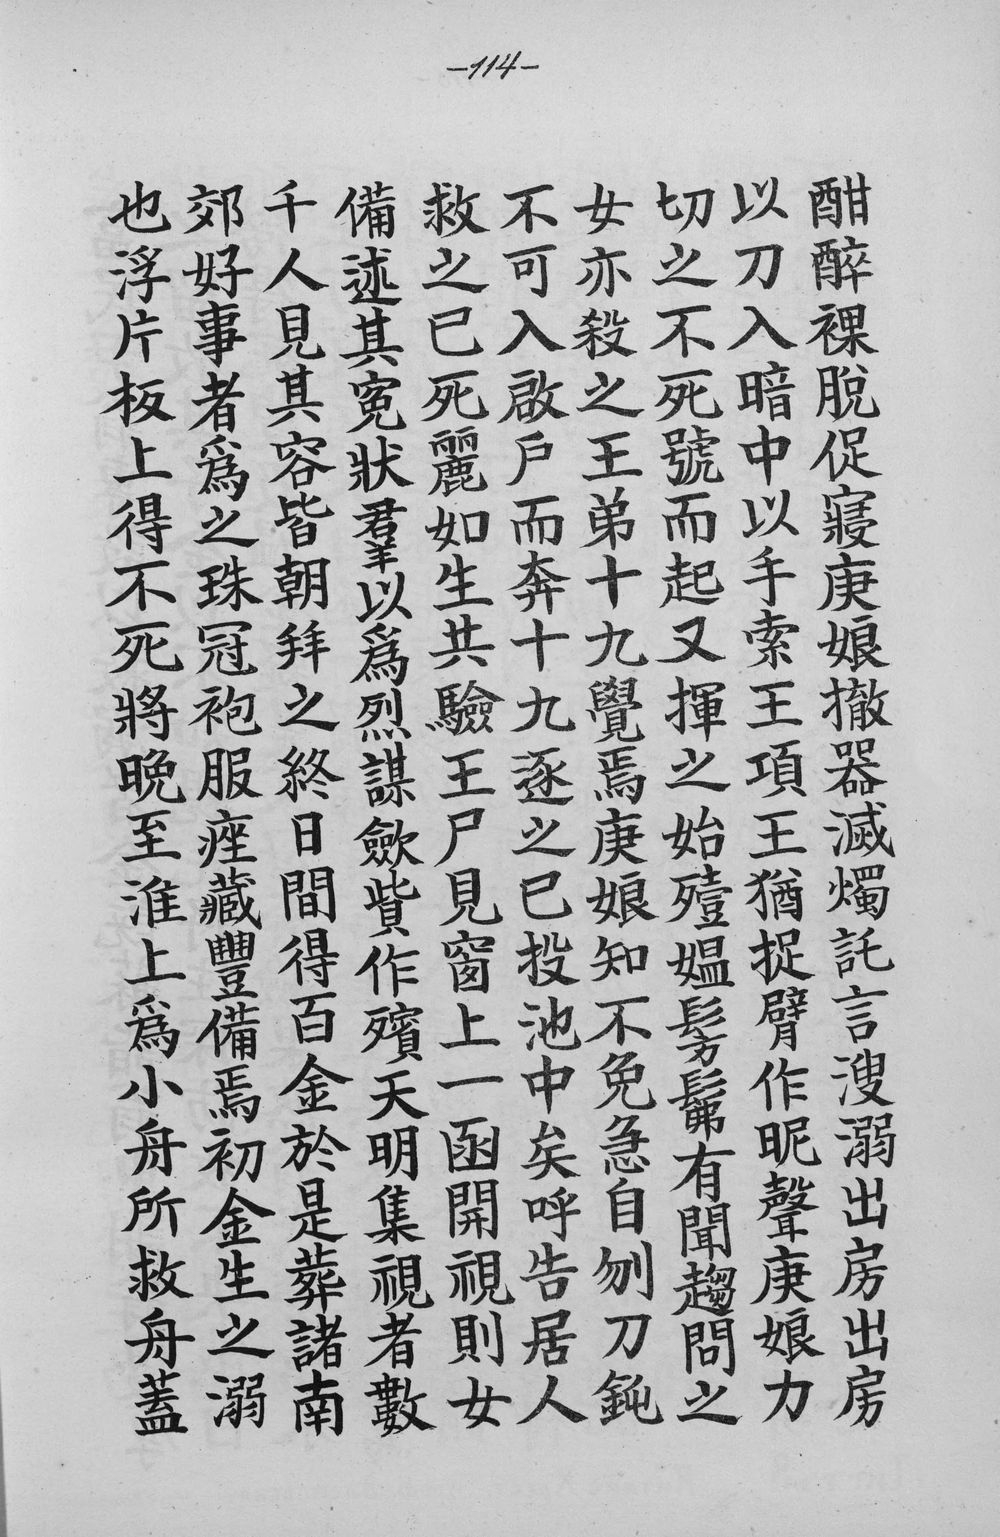 -114-
酣醉裸脫促寢庚娘撤器滅燭託言溲溺出房出房
以刀入暗中以手索王項王猶捉臂作昵聲庚娘力
切之不死號而起又揮之始殪媼髣髴有聞趨問之
女亦殺之王弟十九覺焉庚娘知不免急自刎刀鈍
不可入啟戶而奔十九逐之已投池中矣呼告居人
救之已死麗如生共驗王尸見窗上一函開視則女
備述其寃狀羣以爲烈謀歛貲作殯天明集視者數
千人見其容皆朝拜之終日間得百金於是葬諸南
郊好事者爲之珠冠袍服瘞藏豐備焉初金生之溺
也浮片板上得不死將晚至淮上爲小舟所救舟蓋